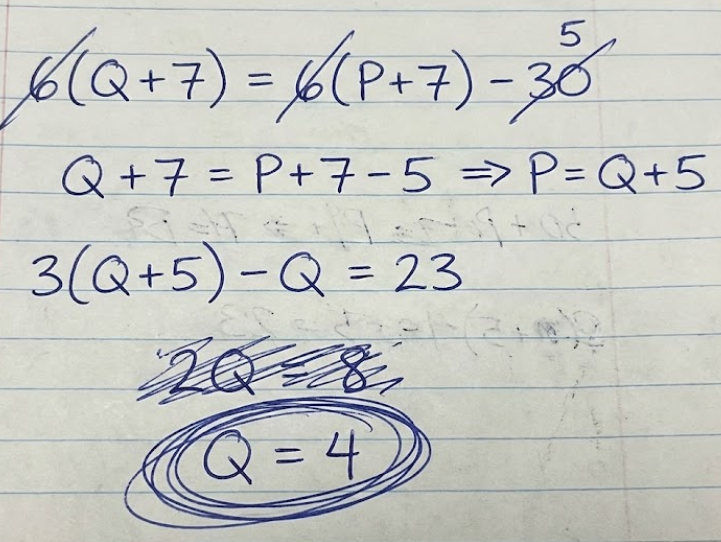 5
6(Q+7) = 6(P+7) - 30
Q+7 = P+7-5 => P = Q+5
3(Q+5) - Q = 23
2Q = 8
Q = 4